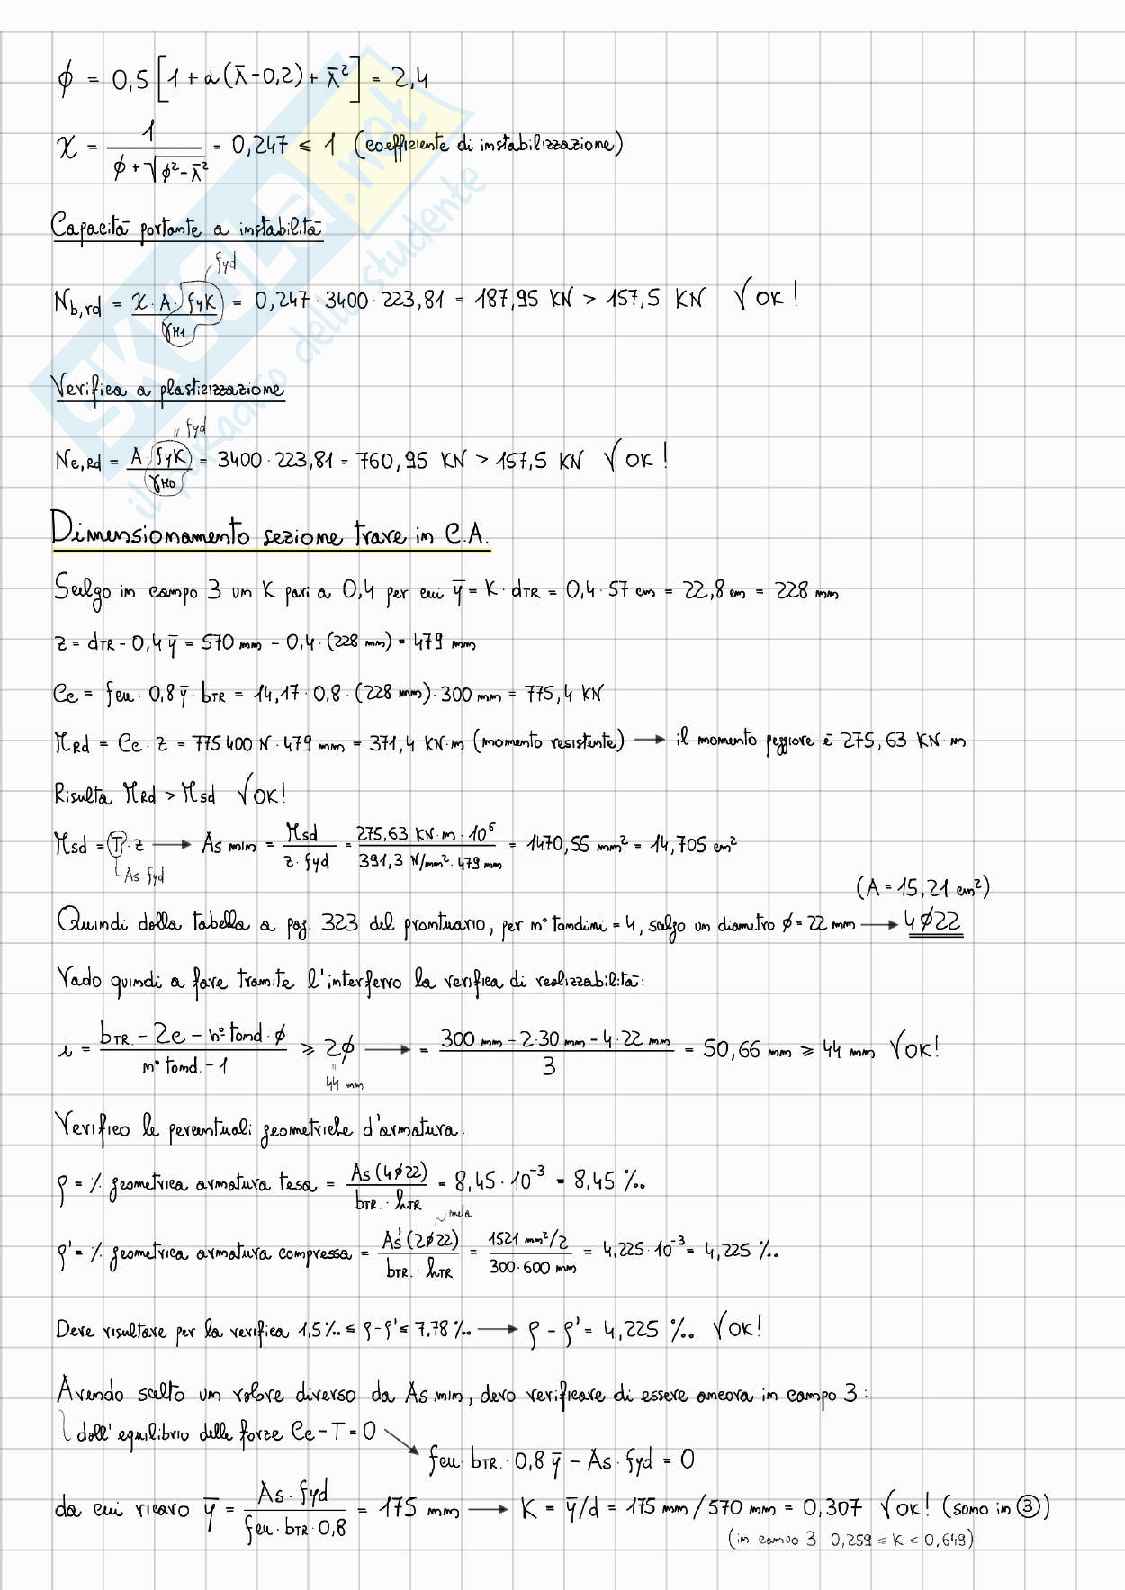 ϕ = 0,5 [1 + α(λ̄ - 0,2) + λ̄²] = 2,4
χ = 1 / (ϕ + √(ϕ² - λ̄²)) = 0,247 ≤ 1 (coefficiente di instabilizzazione)
Capacità portante a instabilità
fyd
Nb,rd = χ · A · fyk / γM1 = 0,247 · 3400 · 223,81 = 187,95 KN > 157,5 KN √ OK!
Verifica a plastizizzazione
fyd
Nc,Rd = A fyk / γM0 = 3400 · 223,81 = 760,95 KN > 157,5 KN √ OK!
Dimensionamento sezione trave in C.A.
Scelgo in campo 3 un K pari a 0,4 per cui ȳ = K · dTR = 0,4 · 57 cm = 22,8 cm = 228 mm
z = dTR - 0,4 ȳ = 570 mm - 0,4 · (228 mm) = 479 mm
Cc = fcu · 0,8 ȳ · bTR = 14,17 · 0,8 · (228 mm) · 300 mm = 775,4 KN
MRd = Cc · z = 775400 N · 479 mm = 371,4 KN·m (momento resistente) → il momento peggiore è 275,63 KN·m
Risulta MRd > Msd √ OK!
Msd = T · z → As min = Msd / (z · fyd) = 275,63 KN·m · 10⁶ / (391,3 N/mm² · 479 mm) = 1470,55 mm² = 14,705 cm²
As fyd
(A = 15,21 cm²)
Quindi dalla tabella a pag. 323 del prontuario, per n° tondini = 4, scelgo un diametro ϕ = 22 mm → 4ϕ22
Vado quindi a fare tramite l'interferro la verifica di realizzabilità:
i = (bTR - 2c - n° tond · ϕ) / (n° tond. - 1) ≥ 2ϕ → = (300 mm - 2·30 mm - 4·22 mm) / 3 = 50,66 mm ≥ 44 mm √ OK!
44 mm
Verifico le percentuali geometriche d'armatura.
ρ = % geometrica armatura tesa = As (4ϕ22) / (bTR · hTR) = 8,45 · 10⁻³ = 8,45 ‰
metà
ρ' = % geometrica armatura compressa = As' (2ϕ22) / (bTR · hTR) = (1521 mm²/2) / (300·600 mm) = 4,225·10⁻³ = 4,225 ‰
Deve risultare per la verifica 1,5‰ ≤ ρ-ρ' ≤ 7,78‰ → ρ - ρ' = 4,225 ‰ √ OK!
Avendo scelto un valore diverso da As min, devo verificare di essere ancora in campo 3:
dall'equilibrio delle forze Cc - T = 0
fcu · bTR · 0,8 ȳ - As · fyd = 0
da cui ricavo ȳ = As · fyd / (fcu · bTR · 0,8) = 175 mm → K = ȳ/d = 175 mm / 570 mm = 0,307 √ OK! (sono in ③)
(in campo 3 0,259 = K < 0,649)
SKUOLA.net
il paradiso dello studente